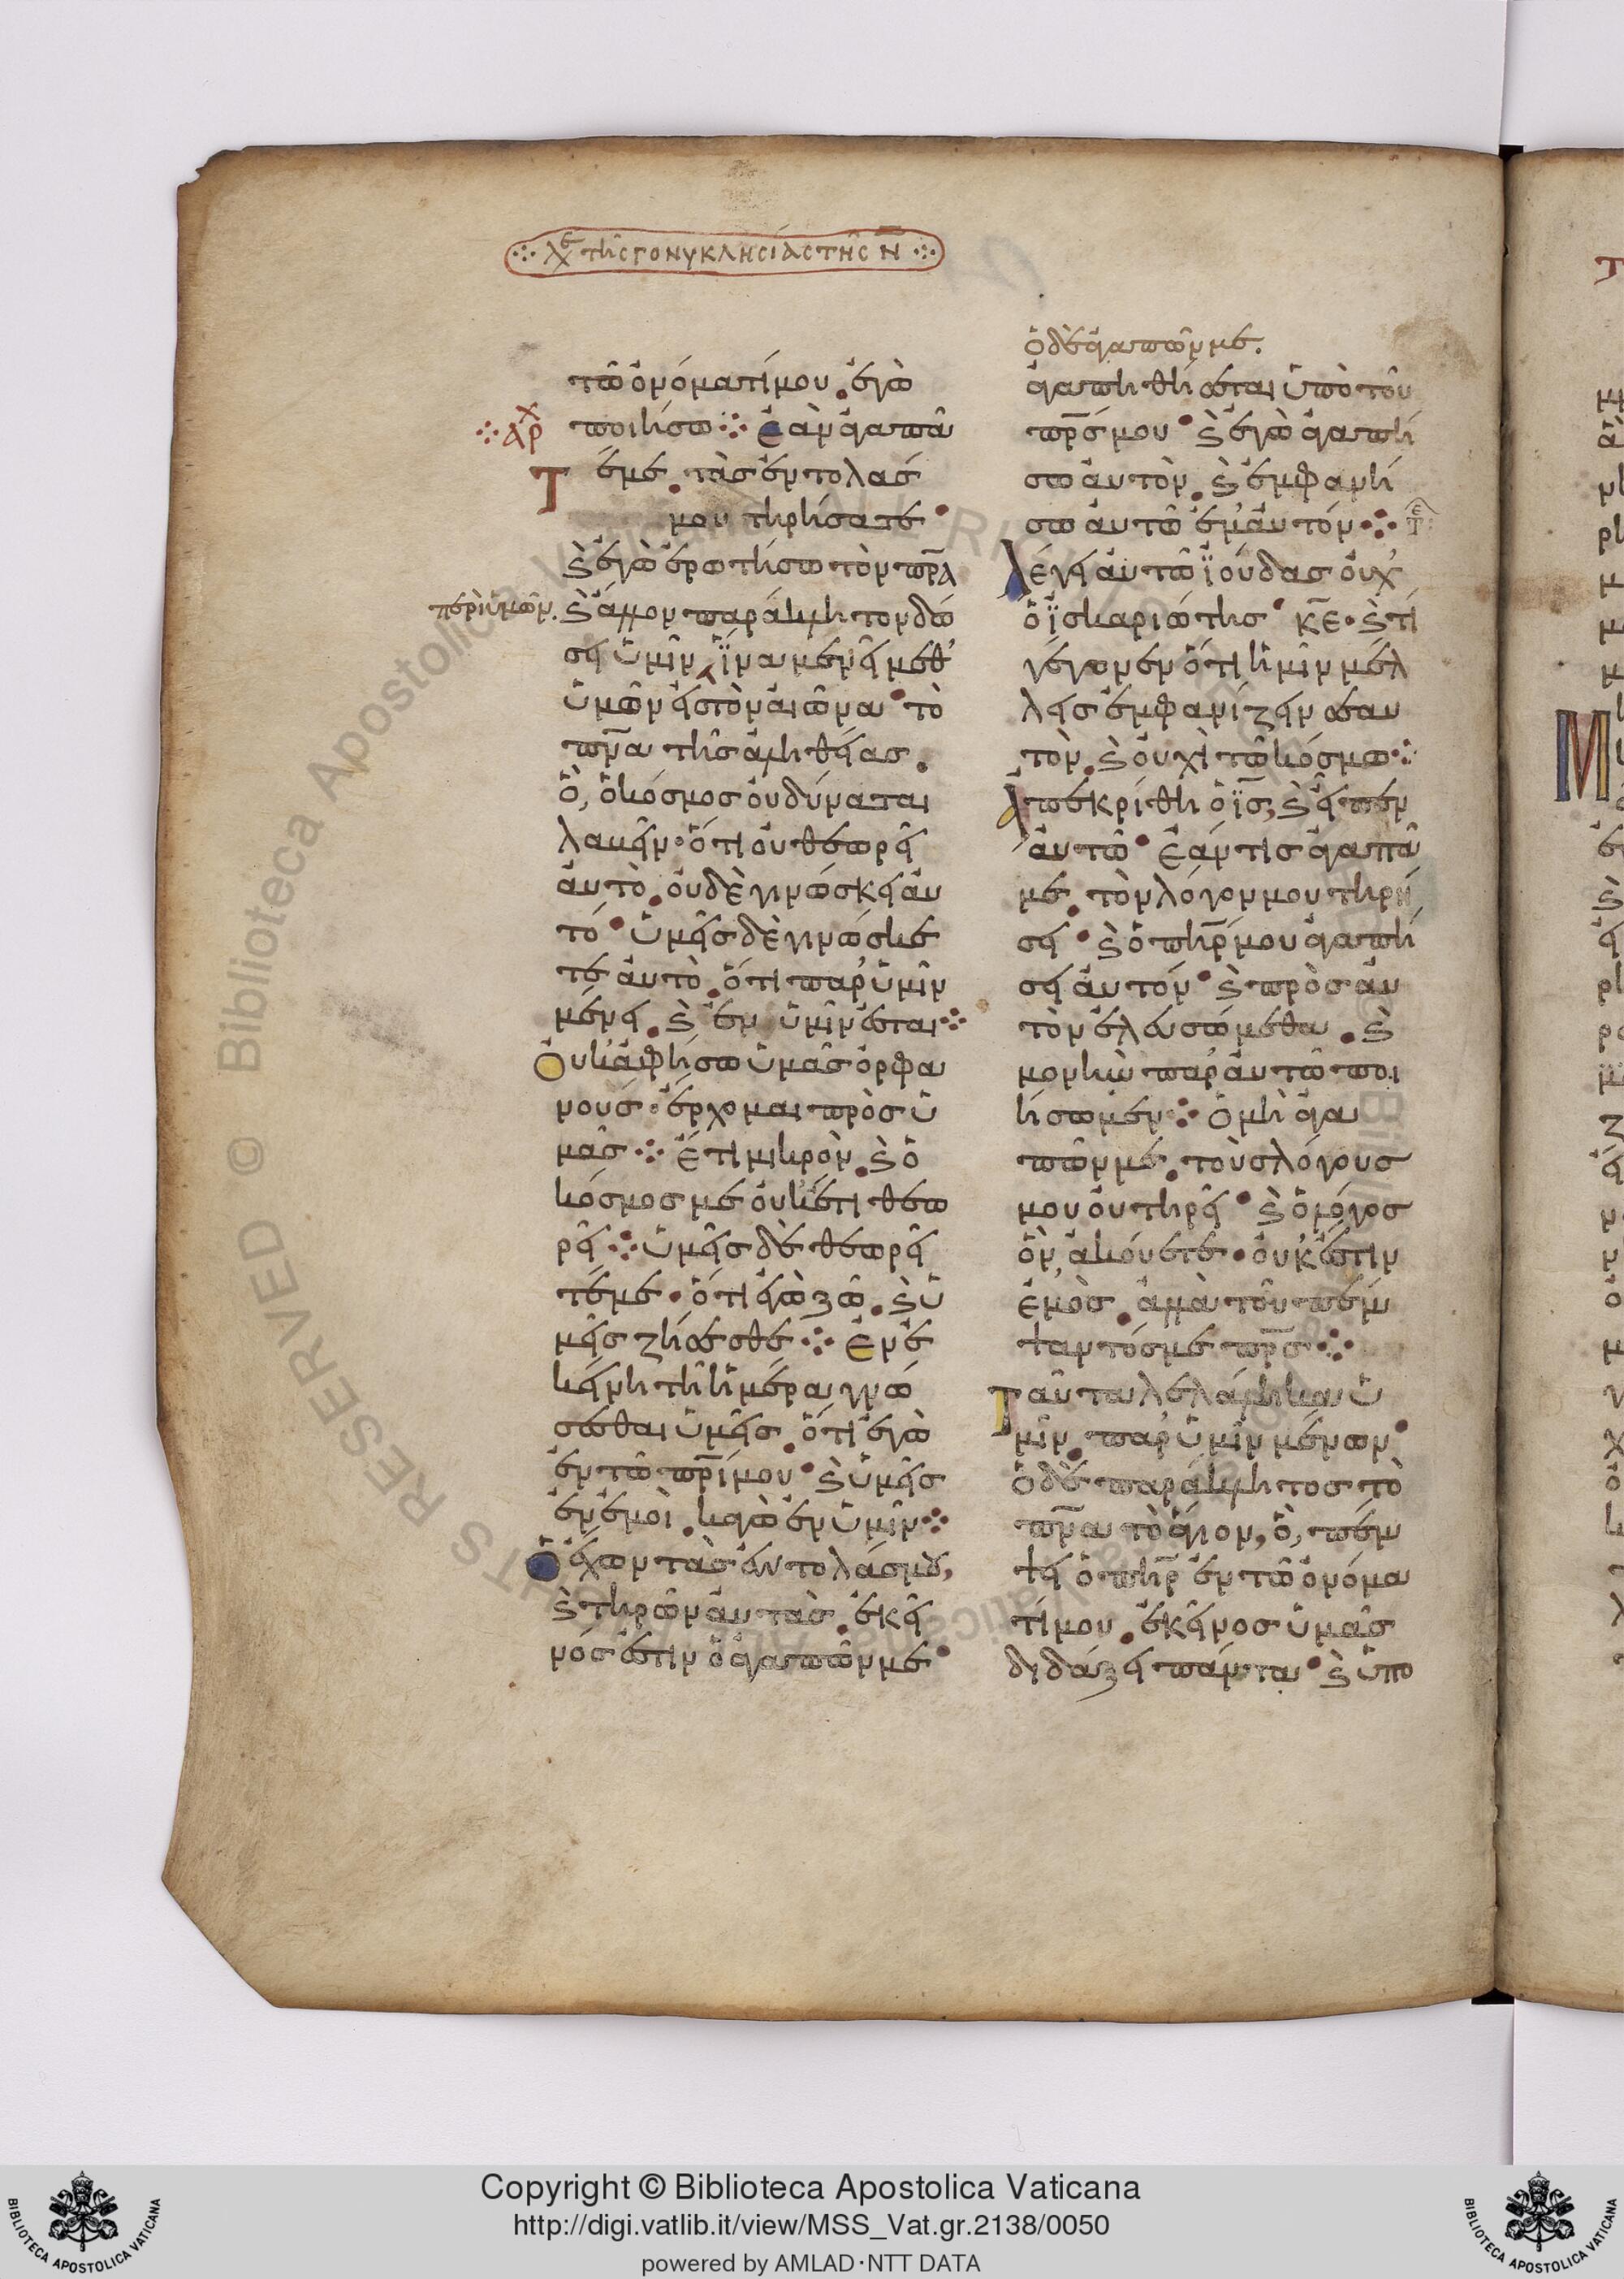 λχε τῆς γονυκλησίας τῆς Ν
τῶ ὀνόματί μου. ἐγὼ
ποιήσω ⁘ ἐὰν ἀγαπᾶ
αρχ
τέ με. τὰς ἐντολάς
μου τηρήσατε·
καὶ ἐγὼ ἐρωτήσω τὸν πρ̅α
περὶ ὑμῶν.
καὶ ἄλλον παράκλητον δώ
σει ὑμῖν, ἵνα μένει μεθ'
ὑμῶν εἰς τὸν αἰῶνα· τὸ
πν̅α τῆς ἀληθείας.
ὃ, ὁ κόσμος οὐ δύναται
λαβεῖν· ὅτι οὐ θεωρεῖ
αὐτὸ. οὐδὲ γινώσκει αὐ
τό· ὑμεῖς δὲ γινώσκε
τε αὐτὸ. ὅτι παρ' ὑμῖν
μένει. καὶ ἐν ὑμῖν ἔσται ⁘
Οὐκ ἀφήσω ὑμᾶς ὀρφα
νούς· ἔρχομαι πρὸς ὑ
μᾶς ⁘ ἔτι μικρὸν. καὶ ὁ
κόσμος με οὐκ ἔτι θεω
ρεῖ ⁘ ὑμεῖς δὲ θεωρεῖ
τέ με· ὅτι ἐγὼ ζῶ. καὶ ὑ
μεῖς ζήσεσθε ⁘ Ἐν ἐ
κείνη τῆ ἡμέρα γνώ
σεσθαι ὑμεῖς. ὅτι ἐγὼ
ἐν τῶ πρ̅ί μου· καὶ ὑμεῖς
ἐν ἐμοὶ. καγὼ ἐν ὑμῖν ⁘
Ὁ ἔχων τὰς ἐντολάς μου,
καὶ τηρῶν αὐτὰς. ἐκεῖ
νός ἐστιν ὁ ἀγαπῶν με·
ὁ δὲ ἀγαπῶν με.
ἀγαπηθήσεται ὑπὸ τοῦ
πρ̅ς μου· καὶ ἐγὼ ἀγαπή
σω αὐτὸν. καὶ ἐμφανή
σω αὐτῶ ἐμαυτόν ⁘
Λέγει αὐτῶ ἰούδας οὐχ'
ὁ ἰσκαριώτης· κ̅ε· καὶ τί
γέγονεν ὅτι ἡμῖν μέλ
λεις ἐμφανίζειν σεαυ
τὸν. καὶ οὐχὶ τῶ κόσμω ⁘
Ἀπεκρίθη ὁ ι̅ς, καὶ εἶπεν
αὐτῶ· ἐάν τις ἀγαπᾶ
με. τὸν λόγον μου τηρή
σει· καὶ ὁ πη̅ρ μου ἀγαπή
σει αὐτόν· καὶ πρὸς αὐ
τὸν ἐλευσώμεθα. καὶ
μονὴν παρ' αὐτῶ ποι
ήσωμεν ⁘ Ὁ μὴ ἀγα
πῶν με. τοὺς λόγους
μου οὐ τηρεῖ· καὶ ὁ λόγος
ὃν ἀκούετε· οὐκ ἔστιν
ἐμὸς. ἀλλὰ τοῦ πέμ
ψαντός με πρ̅ς ⁘
Ταῦτα λελάληκα ὑ
μῖν παρ' ὑμῖν μένων·
ὁ δὲ παράκλητος τὸ
πν̅α τὸ ἅγιον, ὃ, πέμ
ψει ὁ πη̅ρ ἐν τῶ ὀνόμα
τί μου. ἐκεῖνος ὑμᾶς
διδάξει πάντα· καὶ ὑπο
Copyright © Biblioteca Apostolica Vaticana
http://digi.vatlib.it/view/MSS_Vat.gr.2138/0050
powered by AMLAD·NTT DATA